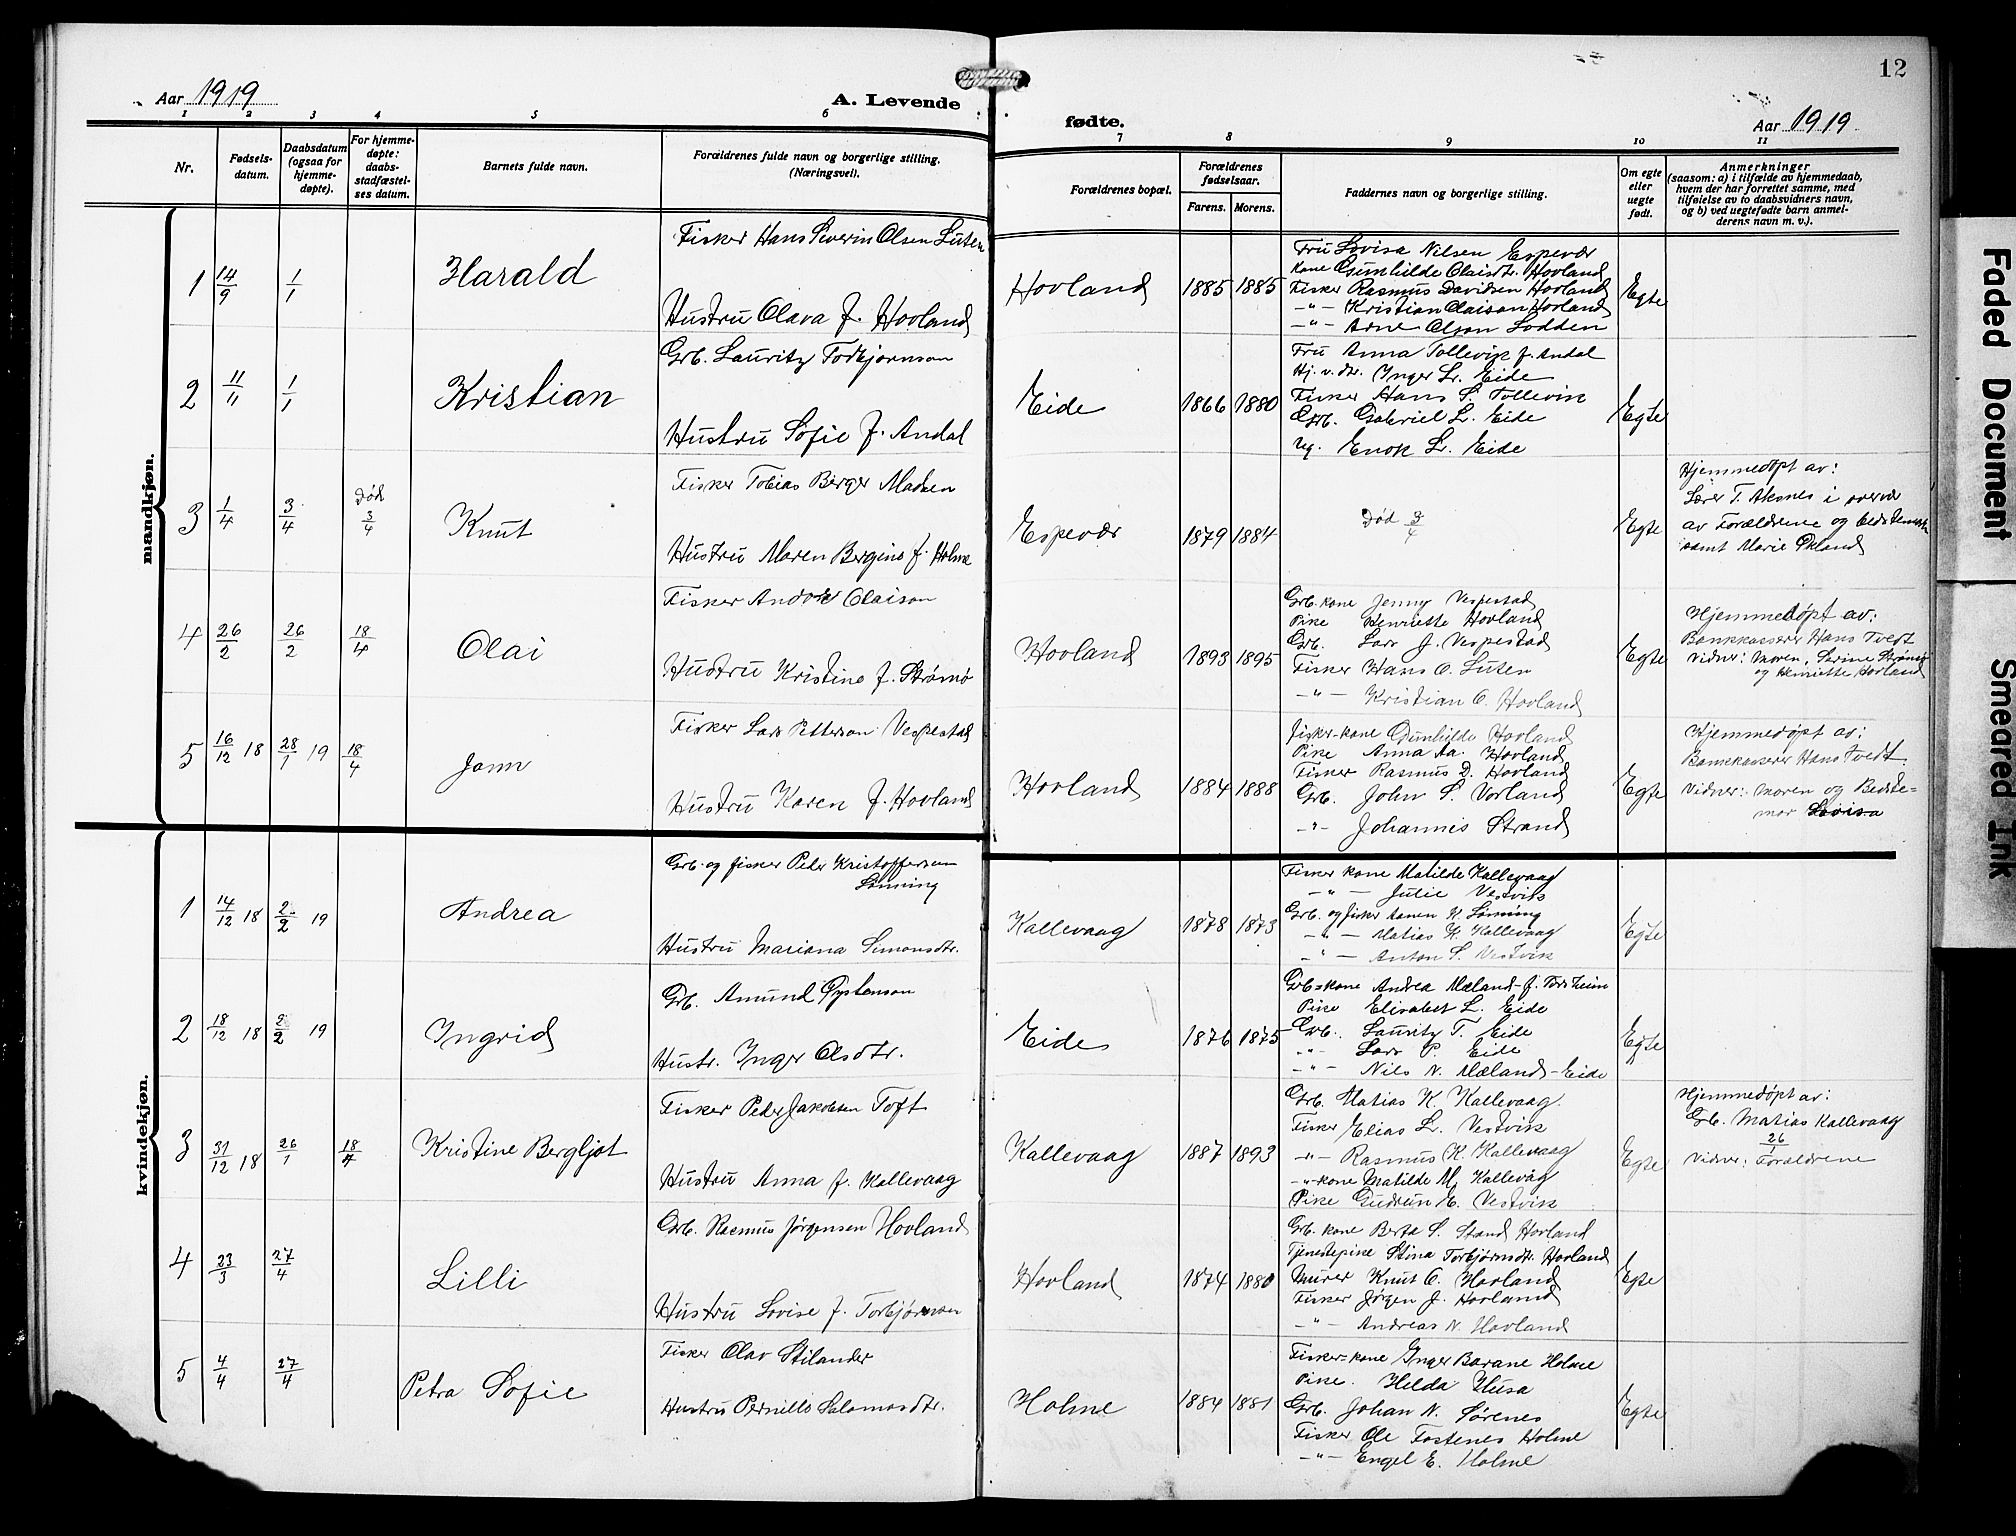 12
Aar 1919
A. Levende
fødte.
Aar 1919.
1 2 3 4 5 6
7 8 9 10 11
Nr.
Fødsels-
datum.
Daabsdatum
(ogsaa for
hjemme-
døpte).
For hjemme-
døpte:
daabs-
stadfæstel-
ses datum.
Barnets fulde navn.
Forældrenes fulde navn og borgerlige stilling.
(Næringsvei).
Forældrenes bopæl.
Forældrenes
fødselsaar.
Farens. Morens.
Faddernes navn og borgerlige stilling.
Om egte
eller
uegte
født.
Anmerkninger
(saasom: a) i tilfælde av hjemmedaab,
hvem der har forrettet samme, med
tilføielse av to daabsvidners navn,
og b) ved uegtefødte barn anmel-
derens navn m. v.).
mandkjøn.
1 14/9 1/1 Harald
Fisker Hans Severin Olsen Luten
Hustru Olava f. Hovland
Hovland 1885 1885
Fru Lovisa Nilsen Espevær
Kone Gunhilde Olaisdtr. Hovland
Fisker Rasmus Davidsen Hovland
-"- Kristian Olaison Hovland
-"- Arne Olson Lodden
Egte
2 11/11 1/1 Kristian
Grb. Lauritz Torbjørnson
Hustru Sofie f. Andal
Eide 1866 1880
Fru Anna Tollevik f. Andal
Hj. v. dtr. Inger L. Eide
Fisker Hans S. Tollevik
Grb. Gabriel L. Eide
Ug. Enok L. Eide
Egte
3 1/4 3/4 Død 3/4 Knut
Fisker Tobias Berger Madsen
Hustru Maren Bergine f. Holme
Espevær 1879 1884
Død 3/4
Egte
Hjemmedøpt av:
Lærer T. Aksnes i overvær
av Forældrene og
samt Marie Økland
4 26/2 26/2 18/4 Olai
Fisker Andor Olaison
Hustru Kristine f. Strømø
Hovland 1893 1895
Grb. kone Jenny Vespestad
Pike Henriette Hovland
Grb. Lars J. Vespestad
Fisker Hans O. Luten
-"- Kristian O. Hovland
Egte
Hjemmedøpt av:
Bankkasserer Hans Tvedt
Vidner: Moren, Serine
og Henriette Hovland
5 16/12 18 28/1 19 18/4 Jonn
Fisker Lars Petterson Vespestad
Hustru Karen f. Hovland
Hovland 1884 1888
Fisker-kone Gunhilde Hovland
Pike Anna Aa. Hovland
Fisker Rasmus D. Hovland
Grb. John S. Vorland
-"- Johannes Strand
Egte
Hjemmedøpt av:
Bankkasserer Hans Tvedt
Vidner: Moren og Bedste-
mor Lovisa
kvindekjøn.
1 14/12 18 2/2 19 Andrea
Grb. og fisker Peder Kristoffersen
Lønning
Hustru Mariana Simonsdtr.
Kallevaag 1878 1873
Fisker kone Matilde Kallevaag
-"- Julie Vestvik
Grb. og fisker K. Lønning
-"- Matias K. Kallevaag
-"- Anton S. Vestvik
Egte
2 18/12 18 2/2 19 Ingrid
Grb. Amund Øystenson
Hustr. Inger Olsdtr.
Eide 1876 1875
Grb-kone Andrea Mæland f.
Pike Elisabet L. Eide
Grb. Lauritz T. Eide
-"- Lars P. Eide
-"- Nils N. Mæland-Eide
Egte
3 31/12 18 26/1 18/4 Kristine Bergljot
Fisker Peder Jakobsen Toft
Hustru Anna f. Kallevaag
Kallevaag 1887 1893
Grb. Matias K. Kallevaag.
Fisker Elias L. Vestvik
-"- Rasmus K. Kallevaag
-"-kone Matilde M. Kallevåg
Pike Gudrun E. Vestvik
Egte
Hjemmedøpt av:
Grb. Matias Kallevaag
26/1
Vidner: Forældrene
4 23/3 27/4 Lilli
Grb. Rasmus Jørgensen Hovland
Hustru Lovise f. Torbjørnsen
Hovland 1874 1880
Grb. kone Berta S. Strand Hovland
Tjenestepike Stina Torbjørnsdtr. Hovland
Murer Knut O. Hovland
Fisker Jørgen J. Hovland
-"- Andreas N. Hovland
Egte
5 4/4 27/4 Petra Sofie
Fisker Olav Stilander
Hustru Pernille Salamonsdtr.
Holme 1884 1881
Fisker-kone Inger Barane Holme
Pike. Helda Husa
Grb. Johan N. Sørenes
Fisker Ole Fostenes Holme
-"- Engel E. Holme
Egte
Faded Document
Smeared Ink